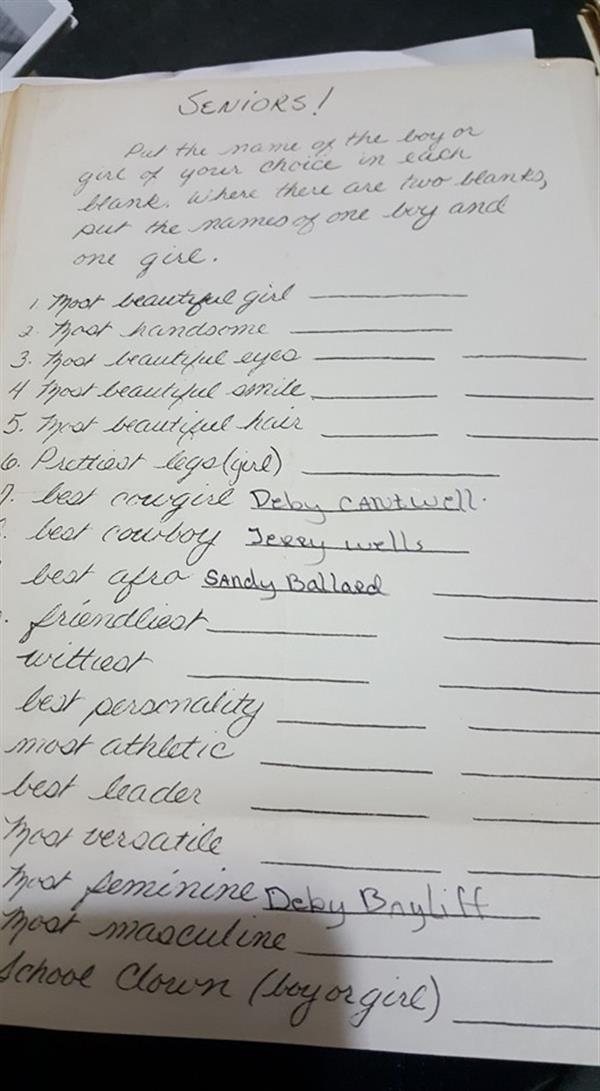 SENIORS!
Put the name of the boy or
girl of your choice in each
blank. Where there are two blanks,
put the names of one boy and
one girl.
1. Most beautiful girl
2. Most handsome
3. Most beautiful eyes
4 Most beautiful smile
5. Most beautiful hair
6. Prettiest legs (girl)
7. best cowgirl Deby CANtwell.
best cowboy Jerry wells
best afro SANdy BAllard
friendliest
wittiest
best personality
most athletic
best leader
Most versatile
Most feminine Deby BAyliff
Most masculine
School Clown (boy or girl)